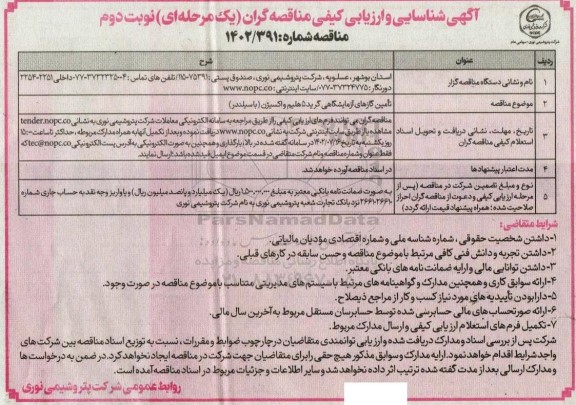 آگهی شناسایی و ارزیابی کیفی مناقصه گران (یک مرحله ای) نوبت دوم
مناقصه شماره: ۱۴۰۲/۳۹۱
شرکت پتروشیمی نوری - سهامی عام
ردیف
عنوان
شرح
۱
نام و نشانی دستگاه مناقصه گزار
استان بوشهر، عسلویه، شرکت پتروشیمی نوری، صندوق پستی: ۷۵۳۹۱-۱۱۵/تلفن های تماس: ۰۷۷-۳۷۳۲۳۲۵۰۰۴ داخلی ۲۲۵۱-۲۲۵۴
دورنگار: ۰۷۷-۳۷۳۲۴۷۷۵/ سایت اینترنتی: www.nopc.co
۲
موضوع مناقصه
تأمین گازهای آزمایشگاهی گرید ۵ هلیم و اکسیژن (با سیلندر)
۳
تاریخ، مهلت، نشانی دریافت و تحویل اسناد
استعلام کیفی مناقصه گران
مناقصه گران می توانند فرم های ارزیابی کیفی را از طریق مراجعه به سامانه الکترونیکی معاملات شرکت پتروشیمی نوری به نشانی tender.nopc.co
مشاهده یا از طریق سایت اینترنتی شرکت به نشانی www.nopc.co دریافت نموده و بعد از تکمیل آنها به همراه مدارک مربوطه، حداکثر تا ساعت ۱۵:۰۰
روز یکشنبه به تاریخ ۱۴۰۲/۰۷/۱۶ در سامانه گفته شده در بالا، بارگذاری و همچنین به صورت الکترونیکی به آدرس پست الکترونیکی tec@nopc.co که
فقط عنوان و شماره مناقصه و نام شرکت متقاضی در قسمت موضوع ایمیل قید شده باشد ارسال نمایند.
۴
مدت اعتبار پیشنهادها
در اسناد مناقصه آورده خواهد شد.
۵
نوع و مبلغ تضمین شرکت در مناقصه (پس از
مرحله ارزیابی کیفی و دعوت از مناقصه گران احراز
صلاحیت شده؛ همراه پیشنهاد قیمت ارائه گردد)
به صورت ضمانت نامه بانکی معتبر به مبلغ ۱.۵۰۰.۰۰۰.۰۰۰ ریال (یک میلیارد و پانصد میلیون ریال) و یا واریز وجه نقد به حساب جاری شماره
۲۶۶۱-۲۶۶۱ نزد بانک تجارت شعبه پتروشیمی نوری به نام شرکت پتروشیمی نوری
شرایط متقاضی:
۱-داشتن شخصیت حقوقی، شماره شناسه ملی و شماره اقتصادی مؤدیان مالیاتی.
۲-داشتن تجربه و دانش فنی کافی مرتبط با موضوع مناقصه و حسن سابقه در کارهای قبلی.
۳-داشتن توانایی مالی و ارایه ضمانت نامه های بانکی معتبر.
۴-ارائه سوابق کاری و همچنین مدارک و گواهینامه های مرتبط با سیستم های مدیریتی متناسب با موضوع مناقصه در صورت وجود.
۵-دارا بودن تأییدیه های مورد نیاز کسب و کار از مراجع ذیصلاح.
۶-ارائه صورتحساب های مالی حسابرسی شده توسط حسابرسان مستقل مربوط به آخرین سال مالی.
۷-تکمیل فرم های استعلام ارزیابی کیفی و ارسال مدارک مربوط.
شرکت پس از بررسی اسناد و مدارک دریافت شده و ارزیابی توانمندی متقاضیان در چارچوب ضوابط و مقررات، نسبت به توزیع اسناد مناقصه بین شرکت های
واجد شرایط اقدام خواهد نمود. ارایه مدارک و سوابق مذکور هیچ حقی را برای متقاضیان جهت شرکت در مناقصه ایجاد نخواهد کرد. در ضمن به درخواست ها
و مدارک ارسالی بعد از مدت گفته شده ترتیب اثر داده نخواهد شد و سایر اطلاعات و جزئیات مربوط در اسناد مناقصه آمده است.
روابط عمومی شرکت پتروشیمی نوری
ParsNamadData